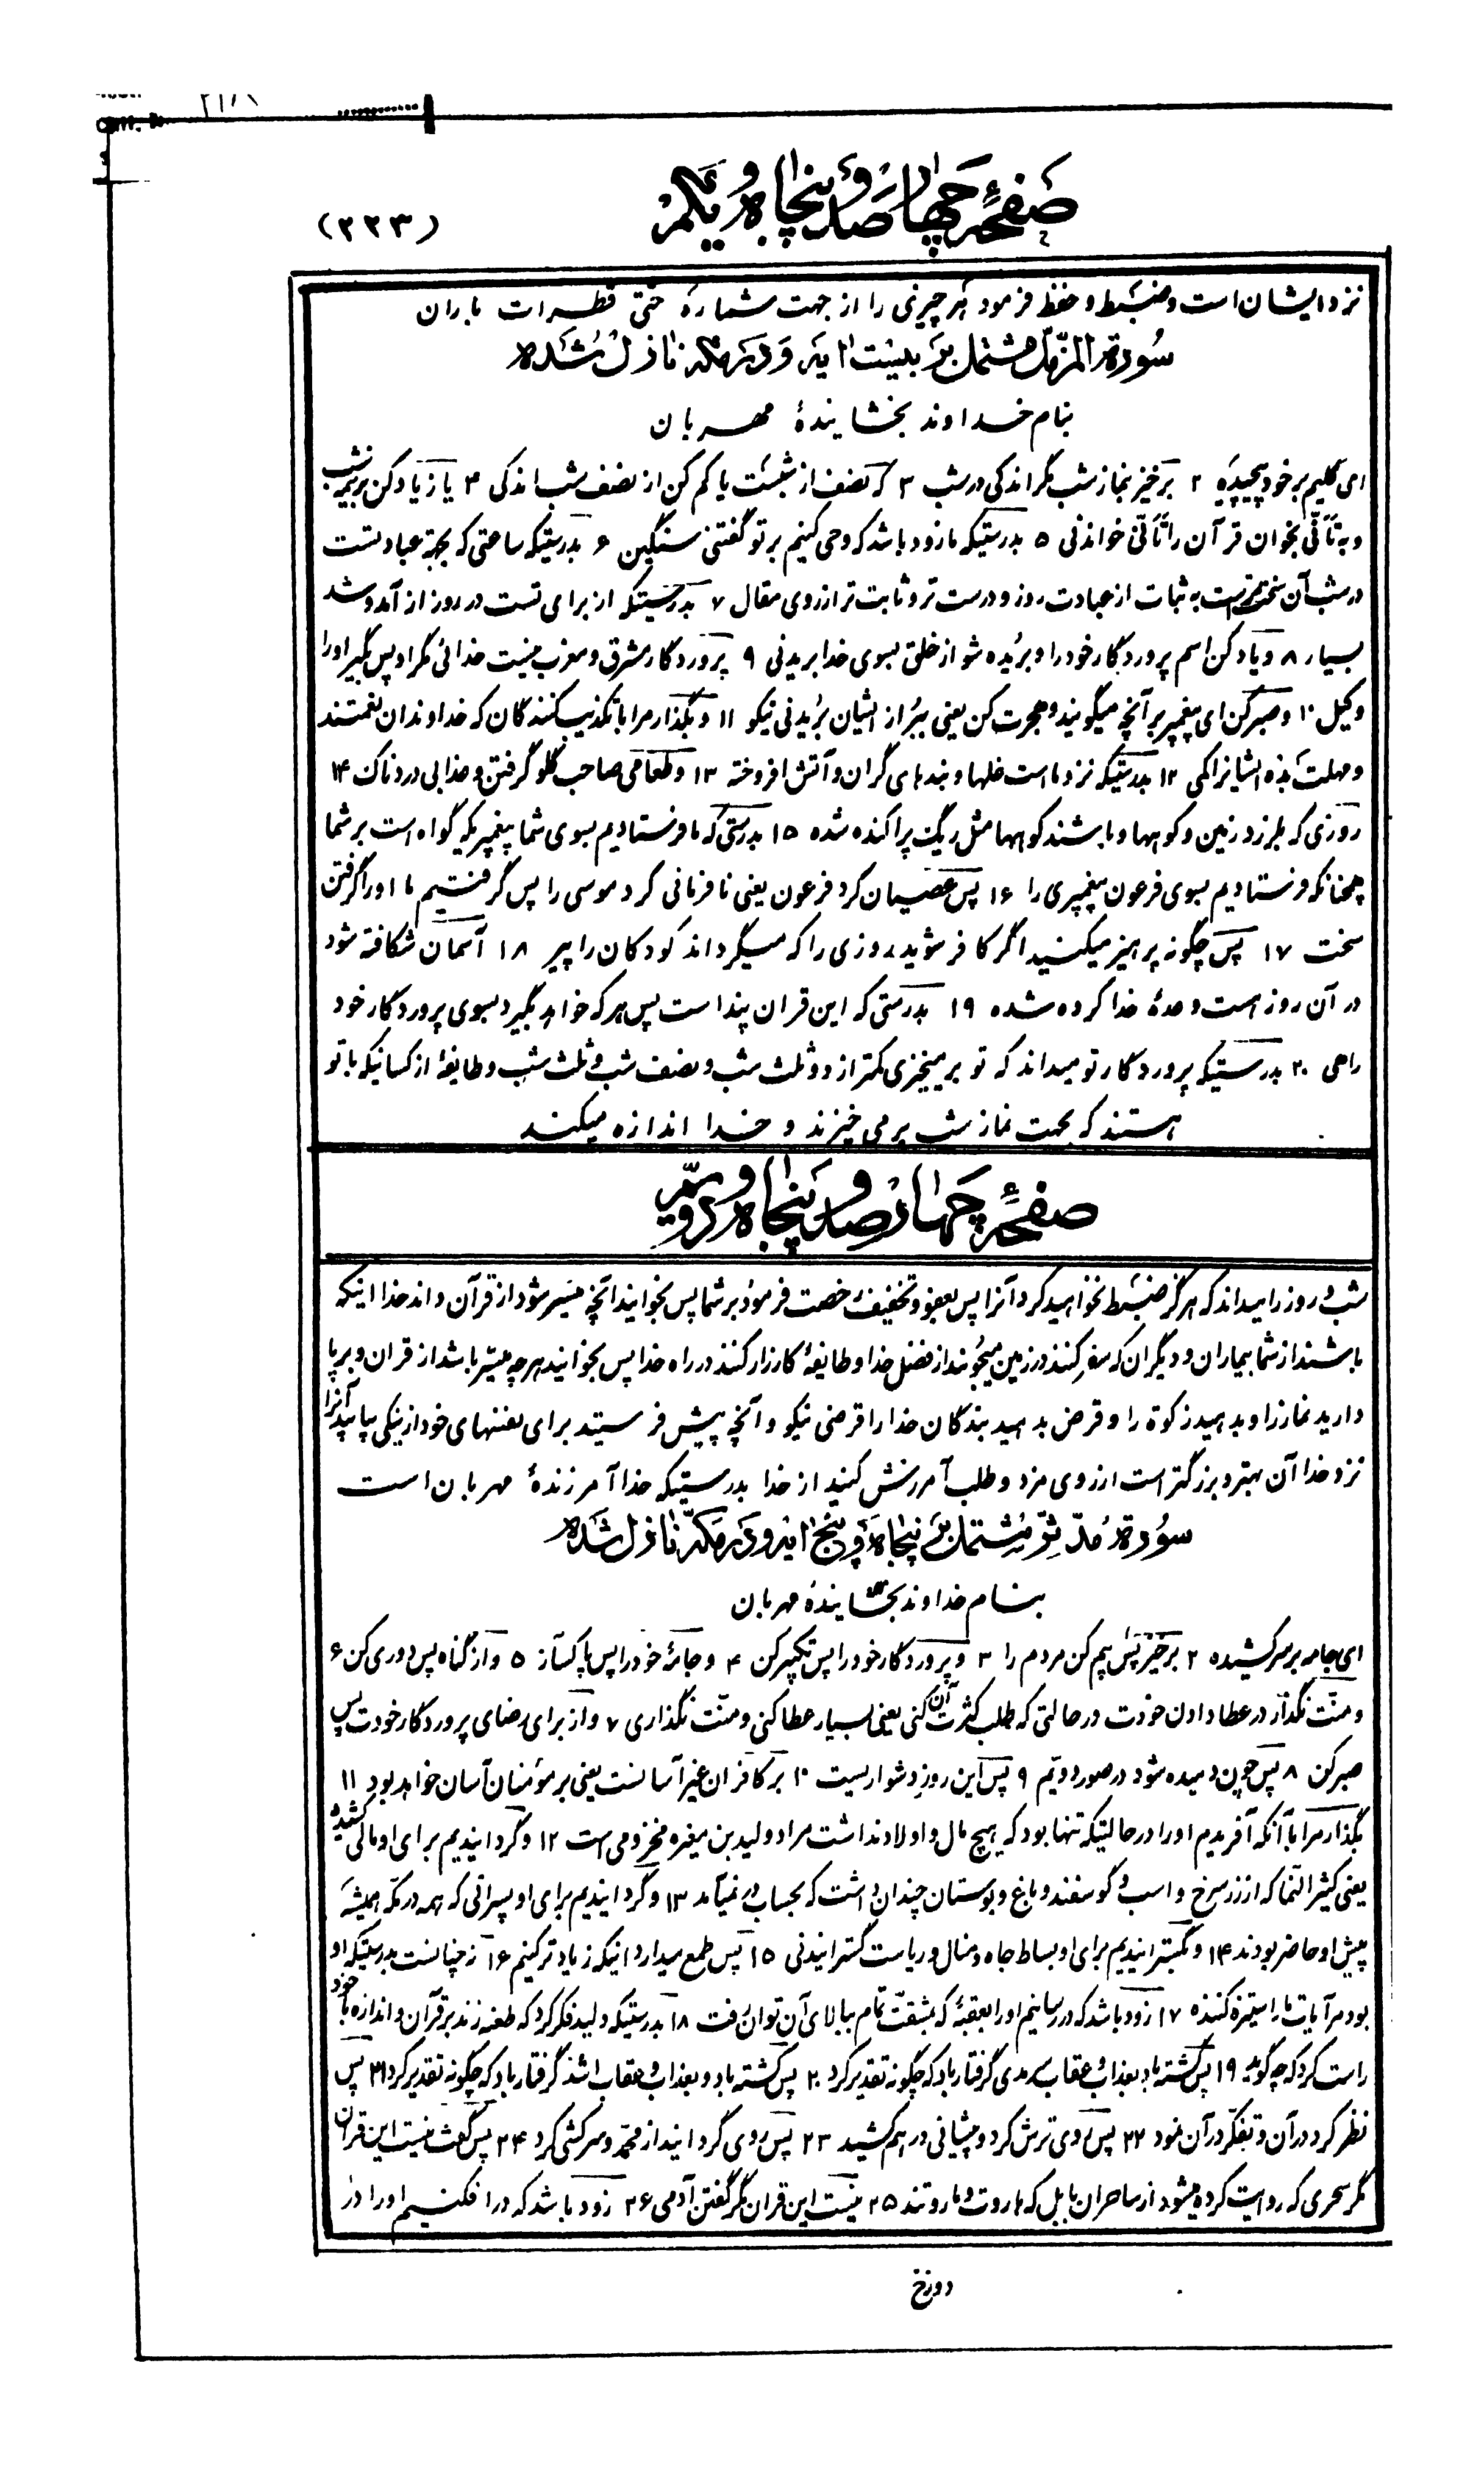 صفحهٔ چهارصد و پنجاه و یکم
(۲۲۳)
نزد ایشان است و ضبط و حفظ فرمود هر چیزی را از جهت شماره حتی قطرات باران
سورة المزمّل مشتمل بر بیست آیه و در مکه نازل شده
بنام خداوند بخشایندهٔ مهربان
ای گلیم بر خود پیچیده ۲ برخیز بنماز شب مگر اندکی در شب ۳ که نصف از شبست یا کم کن از نصف شب اندکی ۴ یا زیاد کن بر نیمه شب
و به تأنّی بخوان قرآن را تأنّی خواندنی ۵ بدرستیکه ما زود باشد که وحی کنیم بر تو گفتنی سنگین ۶ بدرستیکه ساعتی که بجهة عبادتست
در شب آن سخت‌تر است به ثبات از عبادت روز و درست تر و ثابت تر از روی مقال ۷ بدرستیکه از برای تست در روز از آمد و شد
بسیار ۸ و یاد کن اسم پروردگار خود را و بریده شو از خلق بسوی خدا بریدنی ۹ پروردگار مشرق و مغرب نیست خدائی مگر او پس بگیر او را
وکیل ۱۰ و صبر کن ای پیغمبر بر آنچه میگویند و هجرت کن یعنی ببُر از ایشان بُریدنی نیکو ۱۱ و بگذار مرا با تکذیب کنندگان که خداوندان نعمتند
و مهلت بده ایشانرا کمی ۱۲ بدرستیکه نزد ما است غلها و بندهای گران و آتش افروخته ۱۳ و طعامی صاحب گلو گرفتن و عذابی دردناک ۱۴
روزی که بلرزد زمین و کوهها و باشند کوهها مثل ریگ پراکنده شده ۱۵ بدرستی که ما فرستادیم بسوی شما پیغمبریکه گواه است بر شما
همچنانکه فرستادیم بسوی فرعون پیغمبری را ۱۶ پس عصیان کرد فرعون یعنی نافرمانی کرد موسی را پس گرفتیم ما او را گرفتن
سخت ۱۷ پس چگونه پرهیز میکنید اگر کافر شوید روزی را که میگرداند کودکان را پیر ۱۸ آسمان شکافته شود
در آن روز است وعدهٔ خدا کرده شده ۱۹ بدرستی که این قرآن پند است پس هر که خواهد بگیرد بسوی پروردگار خود
راهی ۲۰ بدرستیکه پروردگار تو میداند که تو برمیخیزی کمتر از دو ثلث شب و نصف شب و ثلث شب و طایفهٔ از کسانیکه با تو
هستند که بجهت نماز شب بر می خیزند و خدا اندازه میکند
صفحهٔ چهارصد و پنجاه و دویم
شب و روز را میداند که هرگز ضبط نخواهید کرد آنرا پس بعفو و تخفیف رخصت فرمود بر شما پس بخوانید آنچه میسر شود از قرآن داند خدا اینکه
باشند از شما بیماران و دیگران که سفر کنند در زمین میجویند از فضل خدا و طایفهٔ کارزار کنند در راه خدا پس بخوانید هر چه میسر باشد از قران و برپا
دارید نماز را و بدهید زکوة را و قرض بدهید بندگان خدا را قرضی نیکو و آنچه پیش فرستید برای نفسهای خود از نیکی بیابید آنرا
نزد خدا آن بهتر و بزرگتر است از روی مزد و طلب آمرزش کنید از خدا بدرستیکه خدا آمرزندهٔ مهربان است
سورة مدّثّر مشتمل بر پنجاه و پنج آیه و در مکّه نازل شده
بنام خداوند بخشایندهٔ مهربان
ای جامه بر سر کشیده ۲ برخیز پس بیم کن مردم را ۳ و پروردگار خود را پس تکبیر کن ۴ و جامهٔ خود را پس پاکساز ۵ و از گناه پس دوری کن ۶
و منّت نگذار در عطا دادن خودت در حالتی که طلب کثرت آن کنی یعنی بسیار عطا کنی و منّت نگذاری ۷ و از برای رضای پروردگار خودت پس
صبر کن ۸ پس چون دمیده شود در صور دویم ۹ پس این روز دشواریست ۱۰ بر کافران غیر آسانست یعنی بر مؤمنان آسان خواهد بود ۱۱
بگذار مرا با آنکه آفریدم او را در حالتیکه تنها بود که هیچ مال و اولاد نداشت مراد ولید بن مغیره مخزومی است ۱۲ و گردانیدیم برای او مالی کشیده
یعنی کثیر النّما که از زر سرخ و اسب و گوسفند و باغ و بوستان چندان داشت که بحساب در نمیآمد ۱۳ و گردانیدیم برای او پسرانی که همه در مکّه همیشه
پیش او حاضر بودند ۱۴ و بگسترانیدیم برای او بساط جاه و منال و ریاست گسترانیدنی ۱۵ پس طمع میدارد اینکه زیادتر کنیم ۱۶ نه چنانست بدرستیکه او
بود مر آیات ما را ستیزه کننده ۱۷ زود باشد که در رسانیم او را بعقبهٔ که بمشقت تمام ببالای آن توان رفت ۱۸ بدرستیکه ولید فکر کرد که طعنه زند بر قرآن و اندازه با خود
راست کرد که چه گوید ۱۹ پس کشته باد بعذاب و عقاب سرمدی گرفتار باد که چگونه تقدیر کرد ۲۰ پس کشته باد و بعذاب و عقاب اشد گرفتار باد که چگونه تقدیر کرد ۲۱ پس
نظر کرد در آن و تفکّر در آن نمود ۲۲ پس روی ترش کرد و پیشانی در هم کشید ۲۳ پس روی گردانید از محمّد و سرکشی کرد ۲۴ پس گفت نیست این قرآن
مگر سحری که روایت کرده میشود از ساحران بابل که هاروت و ماروتند ۲۵ نیست این قران مگر گفتن آدمی ۲۶ زود باشد که در افکنیم او را در
دوزخ